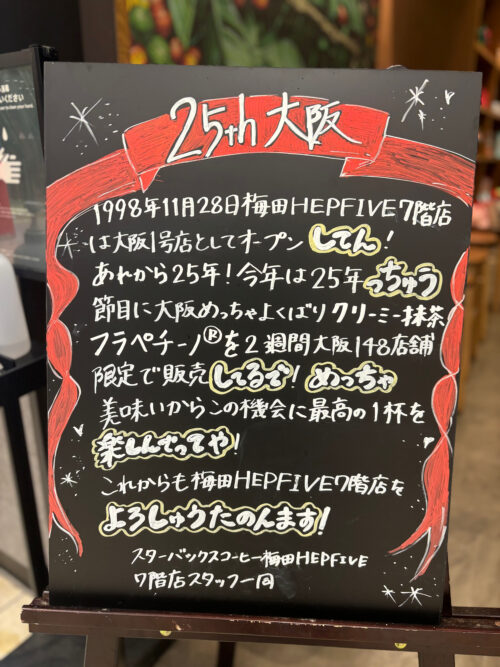 25th 大阪
1998年11月28日梅田HEPFIVE7階店
は大阪1号店としてオープンしてん!
あれから25年!今年は25年っちゅう
節目に大阪めっちゃよくばりクリーミー抹茶
フラペチーノ®を2週間大阪148店舗
限定で販売してるで!めっちゃ
美味いからこの機会に最高の1杯を
楽しんでってや!
これからも梅田HEPFIVE7階店を
よろしゅうたのんます!
スターバックスコーヒー梅田HEPFIVE
7階店スタッフ一同
ください